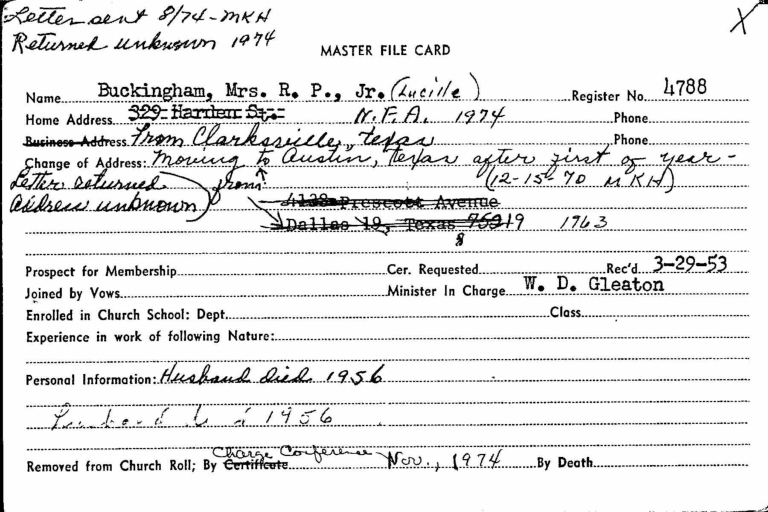 Letter sent 8/74 - MKH
X
Returned unknown 1974
MASTER FILE CARD
Name Buckingham, Mrs. R. P., Jr. (Lucille) Register No. 4788
Home Address 329 Harden St. N.F.A. 1974 Phone
Business Address From Clarksville, Texas Phone
Change of Address: Moving to Austin, Texas after first of year -
Letter returned from: (12-15-70 MKH)
address unknown) 4138 Prescott Avenue
Dallas 19, Texas 75219 1963
8
Prospect for Membership Cer. Requested Rec'd 3-29-53
Joined by Vows Minister In Charge W. D. Gleaton
Enrolled in Church School: Dept. Class
Experience in work of following Nature:
Personal Information: Husband died 1956
1956
Charge Conference
Removed from Church Roll; By Certificate Nov., 1974 By Death